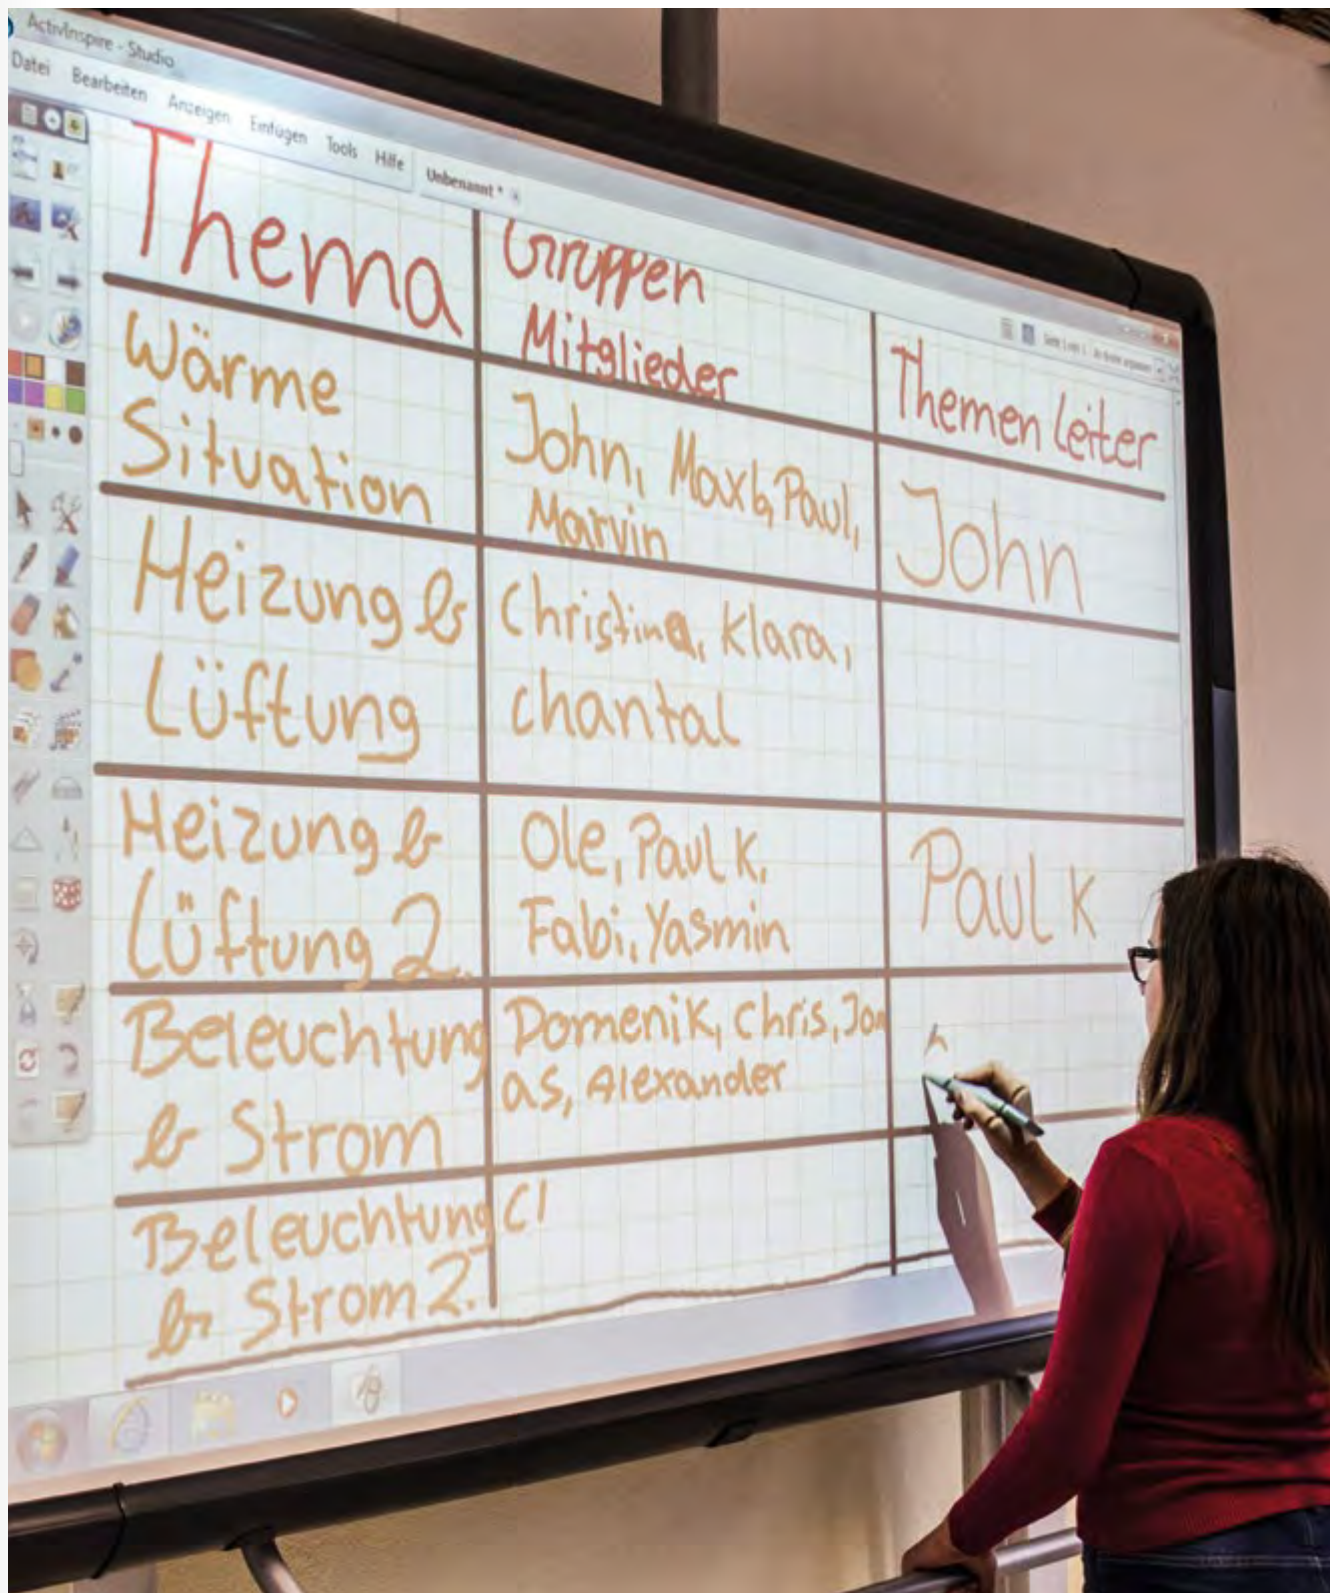 ActivInspire - Studio
Datei Bearbeiten Anzeigen Einfügen Tools Hilfe
Unbenannt *
Thema
Gruppen
Mitglieder
Themen Leiter
Wärme
Situation
John, Maxb, Paul,
Marvin
John
Heizung &
Lüftung
Christina, Klara,
chantal
Heizung &
Lüftung 2.
Ole, Paul K,
Fabi, Yasmin
Paul K
Beleuchtung
& Strom
Domenik, Chris, Jon
as, Alexander
Beleuchtung
& Strom 2.